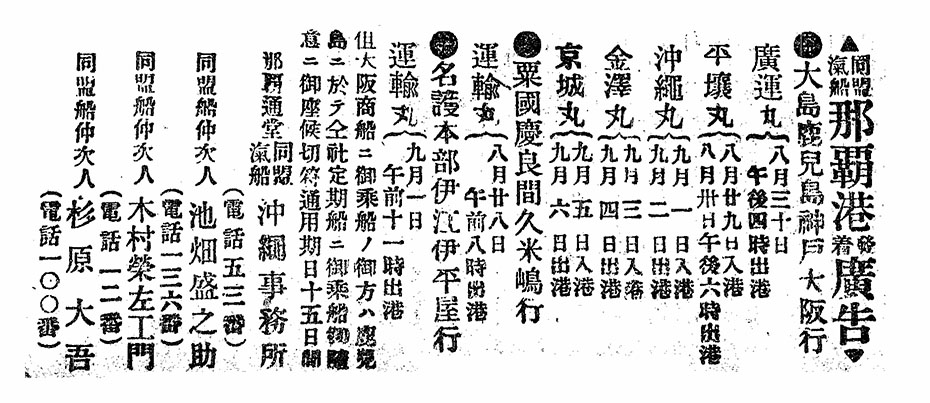 ▲同盟汽船那覇港発着廣告▼
●大島鹿兒島神戸大阪行
廣運丸{八月三十日
午後四時出港
平壤丸{八月廿九日入港
八月卅日午後六時出港
沖繩丸{九月一日入港
九月二日出港
金澤丸{九月三日入港
九月四日出港
京城丸{九月五日入港
九月六日出港
●粟國慶良間久米嶋行
運輸丸{八月廿八日
午前八時出港
●名護本部伊江伊平屋行
運輸丸{九月一日
午前十一時出港
但大阪商船ニ御乘船ノ御方ハ鹿児
島ニ於テ仝社定期船ニ御乘船御隨
意ニ御座候切符通用期日十五日間
那覇通堂 同盟汽船 沖繩事務所
(電話五三番)
同盟船仲次人 池畑盛之助
(電話一三六番)
同盟船仲次人 木村榮左工門
(電話一二番)
同盟船仲次人 杉原大吾
(電話一〇〇番)